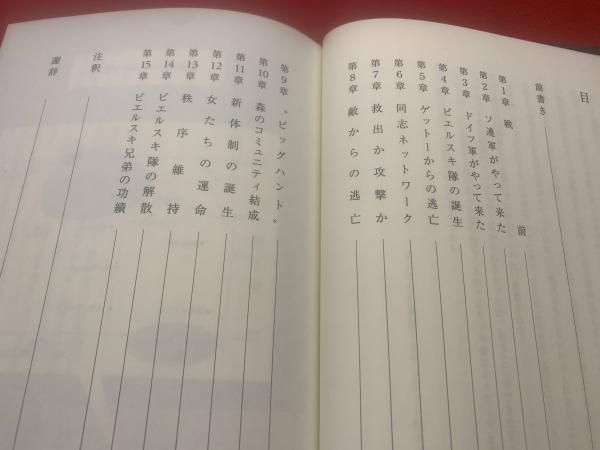 目
前書き
第1章 戦 前
第2章 ソ連軍がやって来た
第3章 ドイツ軍がやって来た
第4章 ビエルスキ隊の誕生
第5章 ゲットーからの逃亡
第6章 同志ネットワーク
第7章 救出か攻撃か
第8章 敵からの逃亡
第9章 〝ビッグハント〟
第10章 森のコミュニティ結成
第11章 新体制の誕生
第12章 女たちの運命
第13章 秩序維持
第14章 ビエルスキ隊の解散
第15章 ビエルスキ兄弟の功績
注釈
謝辞